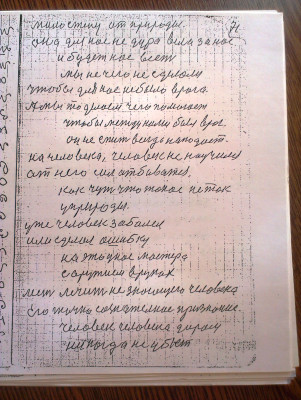 милостыни от природы.
она для нас не дура вела за нас
и будет нас вест
мы не чего не сделали
чтобы для нас не было врага.
А мы то делаем чего помогает
чтобы между нами был враг.
он не спит всегда нападает.
на человека, человек не научился
от него сам отбиватся,
как чуть что такое не так
у природы.
уже человек заболел
или сделал ошибку
на это у нас мастера
с оружием в руках
лечит не знающего человека
Его только сознательное признание.
человек человека даром
никогда не убьет